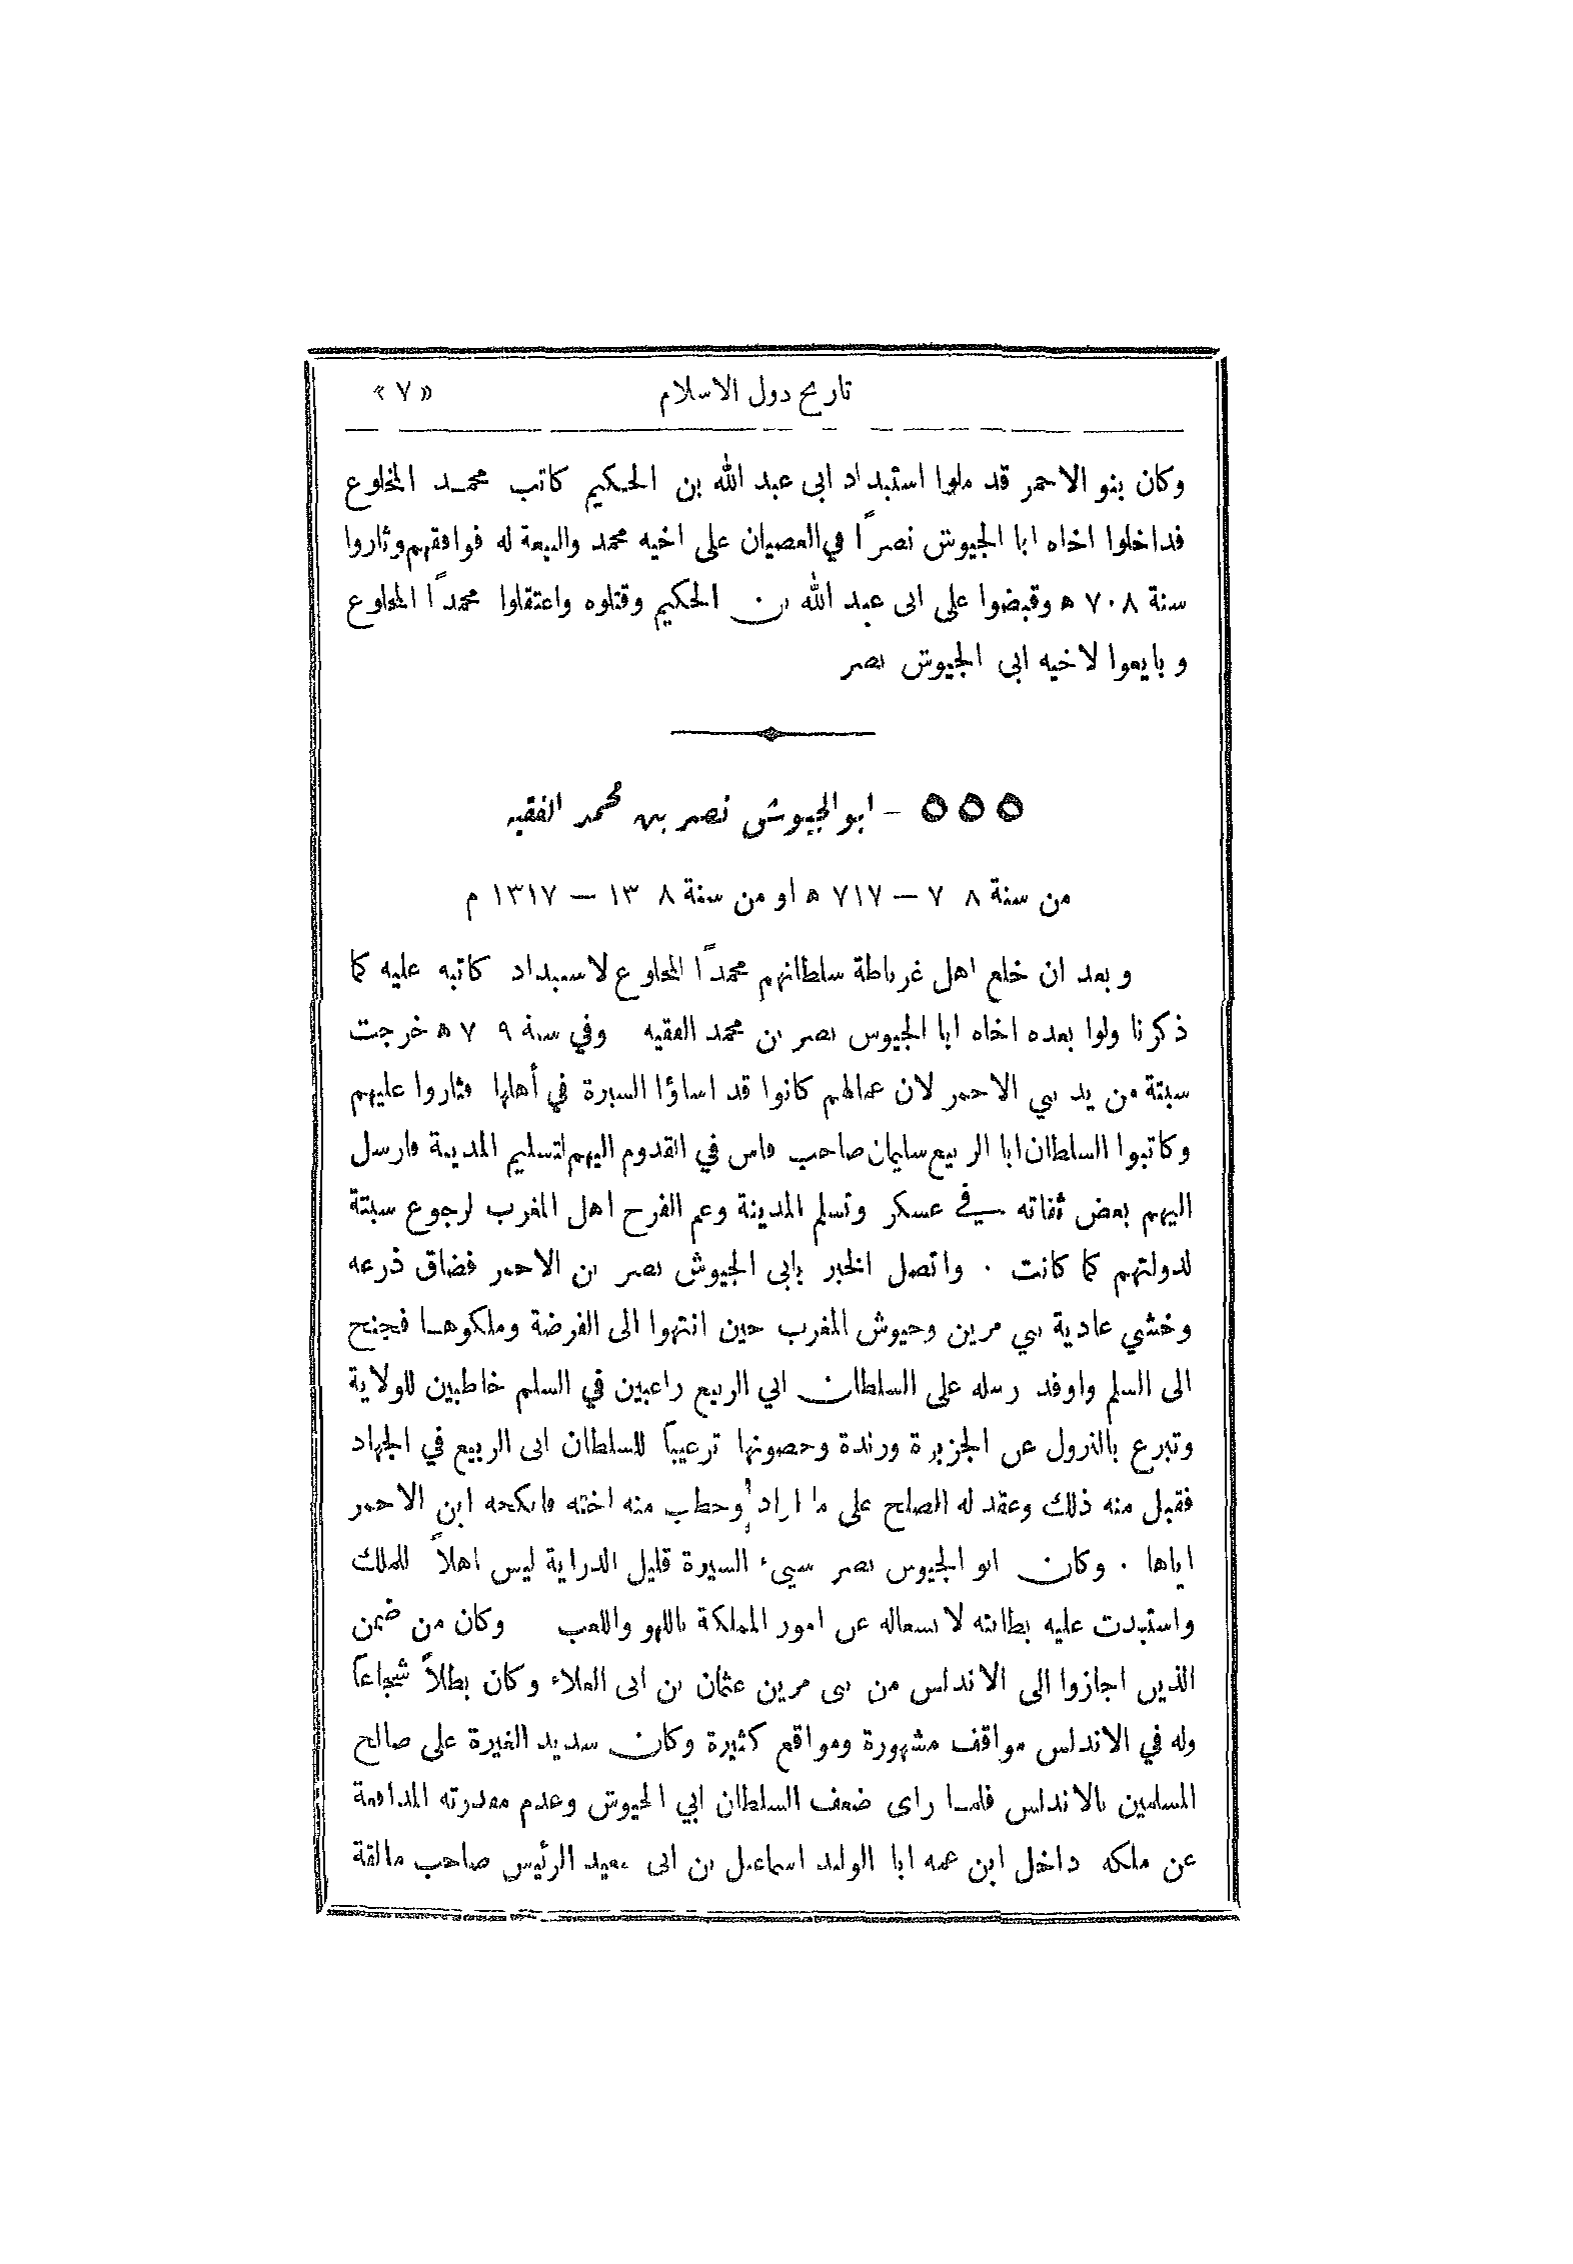 تاريخ دول الاسلام «٧»
وكان بنو الاحمر قد ملوا استبداد ابي عبد الله بن الحكيم كاتب محمد المخلوع
فداخلوا اخاه ابا الجيوش نصرًا في العصيان على اخيه محمد والبيعة له فوافقهم وثاروا
سنة ٧٠٨ ه وقبضوا على ابى عبد الله بن الحكيم وقتلوه واعتقلوا محمدًا المخلوع
وبايعوا لاخيه ابى الجيوش نصر
٥٥٥ – ابو الجيوش نصر بن محمد الفقيه
من سنة ٨ ٧ – ٧١٧ ه او من سنة ٨ ١٣ – ١٣١٧ م
وبعد ان خلع اهل غرناطة سلطانهم محمدًا المخلوع لاستبداد كاتبه عليه كما
ذكرنا ولوا بعده اخاه ابا الجيوش نصر بن محمد الفقيه وفي سنة ٩ ٧ ه خرجت
سبتة من يد بني الاحمر لان عمالهم كانوا قد اساؤا السيرة في أهلها فثاروا عليهم
وكاتبوا السلطان ابا الربيع سليمان صاحب فاس في القدوم اليهم لتسليم المدينة فارسل
اليهم بعض ثقاته في عسكر وتسلم المدينة وعم الفرح اهل المغرب لرجوع سبتة
لدولتهم كما كانت . واتصل الخبر بابى الجيوش نصر بن الاحمر فضاق ذرعه
وخشي عادية بني مرين وجيوش المغرب حين انتهوا الى الفرضة وملكوها فجنح
الى السلم واوفد رسله على السلطان ابي الربيع راغبين في السلم خاطبين للولاية
وتبرع بالنزول عن الجزيرة ورندة وحصونها ترغيباً للسلطان ابى الربيع في الجهاد
فقبل منه ذلك وعقد له الصلح على ما اراد وخطب منه اخته فانكحه ابن الاحمر
اياها . وكان ابو الجيوش نصر سيىء السيرة قليل الدراية ليس اهلاً للملك
واستبدت عليه بطانته لانشغاله عن امور المملكة باللهو واللعب وكان من ضمن
الذين اجازوا الى الاندلس من بنى مرين عثمان بن ابى العلاء وكان بطلاً شجاعاً
وله في الاندلس مواقف مشهورة ومواقع كثيرة وكان شديد الغيرة على صالح
المسلمين بالاندلس فلما راى ضعف السلطان ابي الجيوش وعدم مقدرته المدافعة
عن ملكه داخل ابن عمه ابا الوليد اسماعيل بن ابى سعيد الرئيس صاحب مالقة